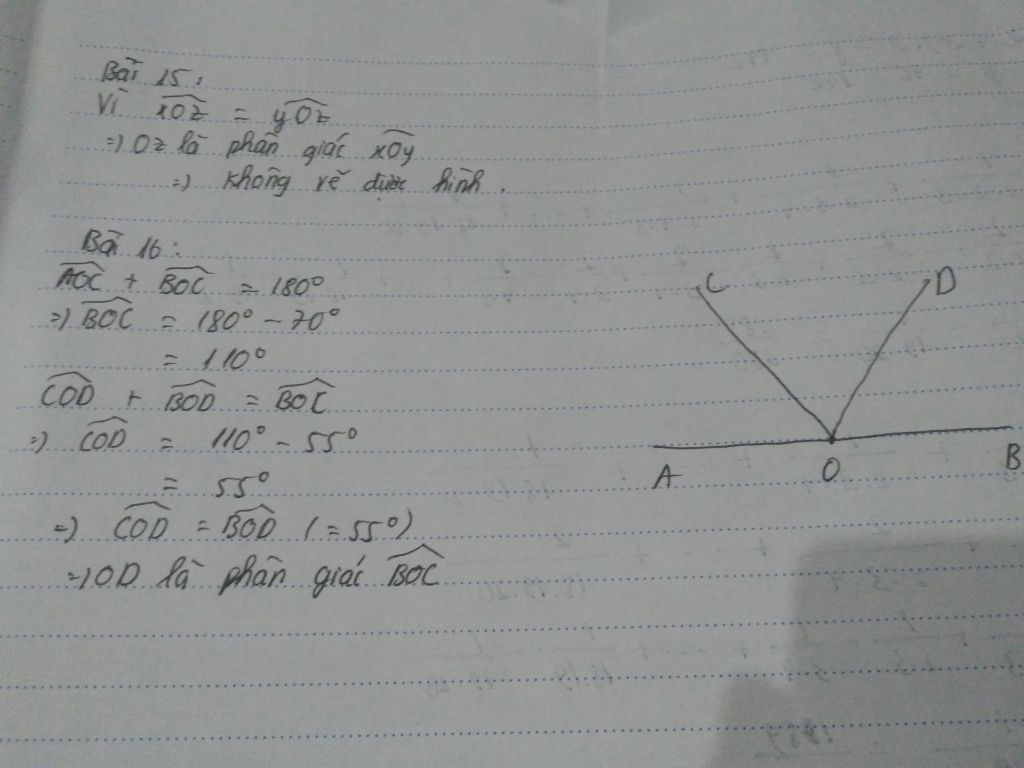 Bài 15:
Vì xOz = yOz
=) Oz là phân giác xOy
=) Không vẽ được hình.
Bài 16:
AOC + BOC = 180°
=) BOC = 180° - 70°
= 110°
COD + BOD = BOC
=) COD = 110° - 55°
= 55°
=) COD = BOD (= 55°)
=) OD là phân giác BOC
C D
A O B